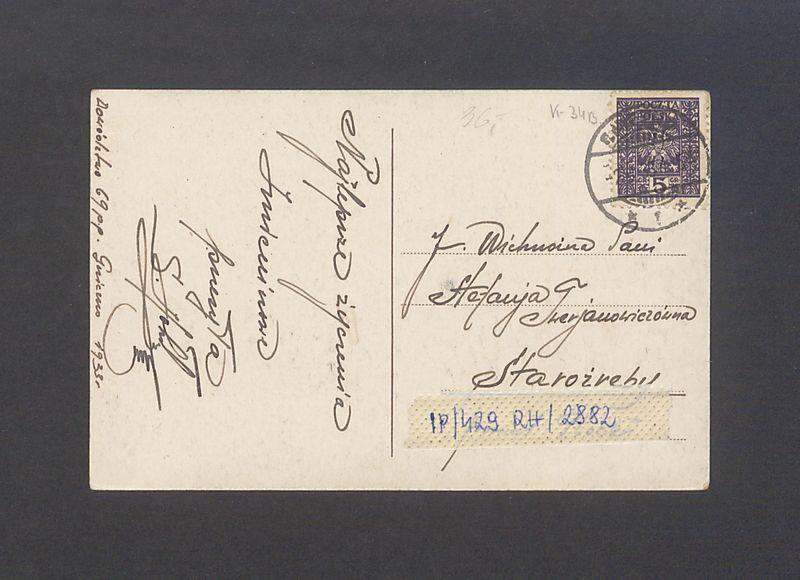 Najlepsze życzenia
Imieninowe
przesyła
69 pp. Gniezno 1933r
36,-
K-34B.
POCZTA
POLSKA
5
1
J. Wielmożna Pani
Stefanja
Starożreby
IP/429 RH/2882